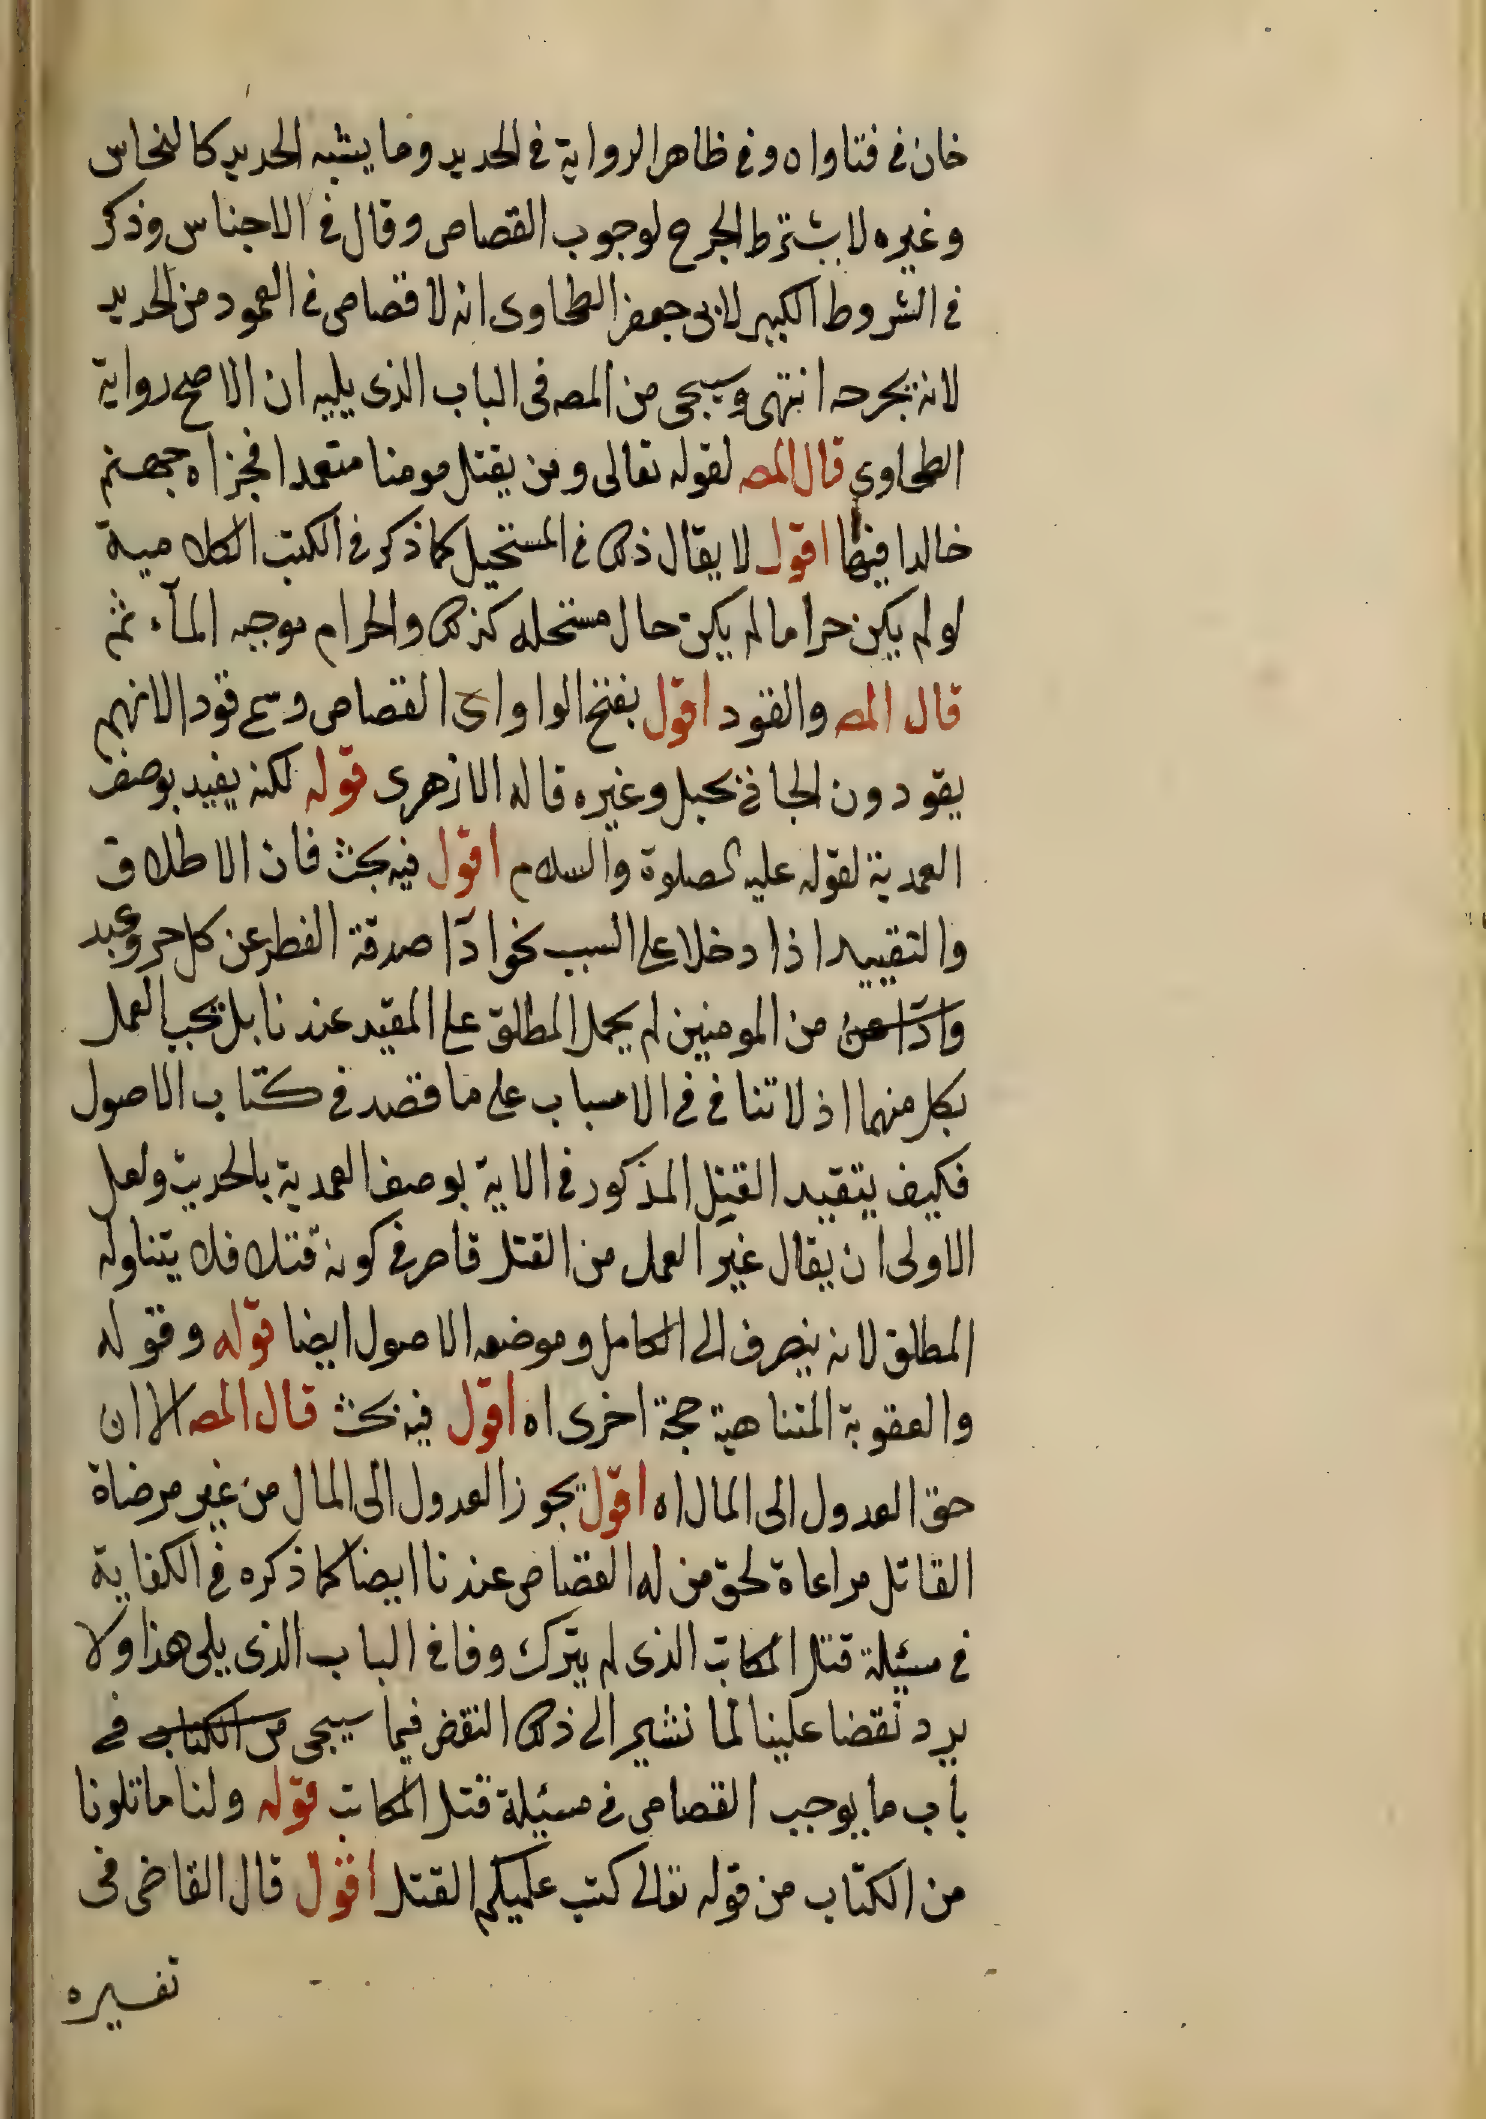 خان فى فتاواه وفى ظاهر الرواية فى الحديد وما يشبه الحديد كالنحاس
وغيره لا يشترط الجرح لوجوب القصاص وقال فى الاجناس وذكر
فى الشروط الكبير لابى جعفر الطحاوى انه لا قصاص فى العمود من الحديد
لانه بجرحه انتهى وسيجى من المصه فى الباب الذى يليه ان الاصح رواية
الطحاوى قال المصه لقوله تعالى ومن يقتل مومنا متعمدا فجزاه جهنم
خالدا فيها اقول لا يقال ذلك فى المستحيل كما ذكر فى الكتب الكلامية
لو لم يكن حراما لم يكن حال مستحله كذلك والحرام موجبه المآء ثم
قال المصه والقود اقول بفتح الواو اى القصاص وسمى قودا لانهم
يقودون الجانى بحبل وغيره قاله الازهرى قوله لكنه يفيد بوصف
العمدية لقوله عليه الصلوة والسلام اقول فيه بحث فان الاطلاق
والتقييد اذا دخلا على السبب نحو ادآ صدقة الفطر عن كل حر وعبد
وادآ عن من المومنين لم يحمل المطلق على المقيد عندنا بل يجب العمل
بكل منهما اذ لا تنافى فى الاسباب على ما قصد فى كتاب الاصول
فكيف يتقيد القتل المذكور فى الاية بوصف العمدية بالحديث ولعل
الاولى ان يقال غير العمل من القتل قاصر فى كونه قتلا فلا يتناوله
المطلق لانه ينصرف الى الكامل وموضعه الاصول ايضا قوله وقوله
والعقوبة المتناهية حجة اخرى اه اقول فيه بحث قال المصه الا ان
حق العدول الى المال اه اقول يجوز العدول الى المال من غير مرضاة
القاتل مراعاة لحق من له القصاص عندنا ايضا كما ذكره فى الكفاية
فى مسئلة قتل المكاتب الذى لم يترك وفا فى الباب الذى يلى هذا ولا
يرد نقضا علينا لما نشير الى ذلك النقض فيما سيجى من الكتاب فى
باب ما يوجب القصاص فى مسئلة قتل المكاتب قوله ولنا ما تلونا
من الكتاب من قوله تعالى كتب عليكم القتل اقول قال القاضى فى
تفسيره